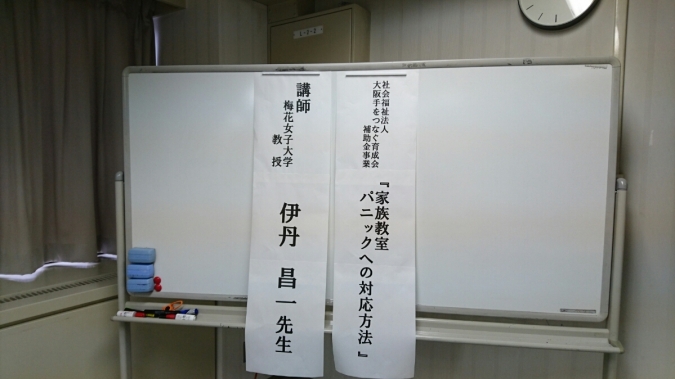 社会福祉法人
大阪手をつなぐ育成会
補助金事業
『家族教室
パニックへの対応方法』
講師
梅花女子大学
教授
伊丹 昌一先生